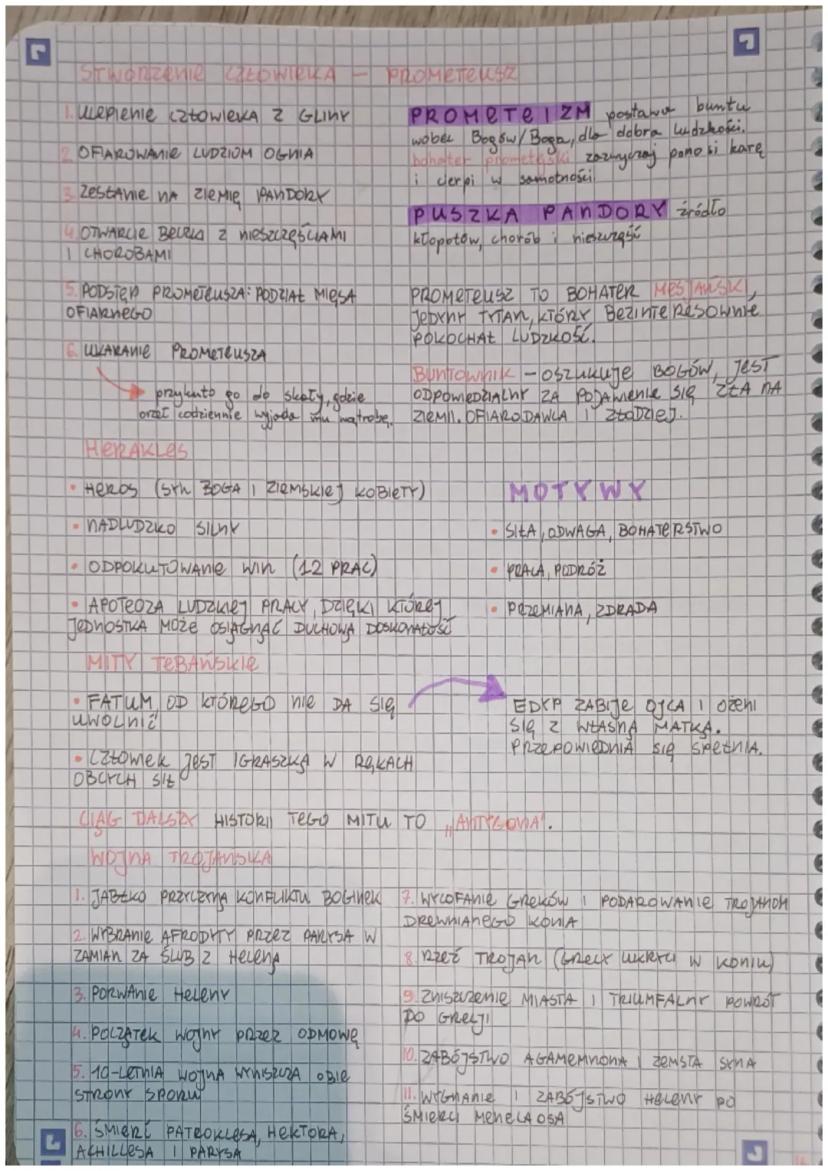 STWORZENIE CZŁOWIEKA – PROMETEUSZ
1. ULEPIENIE CZŁOWIEKA Z GLINY
2. OFIAROWANIE LUDZIOM OGNIA
3. ZESŁANIE NA ZIEMIĘ PANDORY
4. OTWARCIE BECZKI Z NIESZCZĘŚCIAMI
I CHOROBAMI
5. PODSTĘP PROMETEUSZA: PODZIAŁ MIĘSA
OFIARNEGO
6. UKARANIE PROMETEUSZA
przykuto go do skały, gdzie
orzeł codziennie wyjada mu wątrobę.
PROMETEIZM postawa buntu
wobec Bogów/Boga, dla dobra ludzkości.
bohater prometejski zazwyczaj ponosi karę
i cierpi w samotności.
PUSZKA PANDORY źródło
kłopotów, chorób i nieszczęść
PROMETEUSZ TO BOHATER MESJAŃSKI,
JEDYNY TYTAN, KTÓRY BEZINTERESOWNIE
POKOCHAŁ LUDZKOŚĆ.
BUNTOWNIK – OSZUKUJE BOGÓW, JEST
ODPOWIEDZIALNY ZA POJAWIENIE SIĘ ZŁA NA
ZIEMII. OFIARODAWCA I ZŁODZIEJ.
HERAKLES
• HEROS (SYN BOGA I ZIEMSKIEJ KOBIETY)
• NADLUDZKO SILNY
• ODPOKUTOWANIE WIN (12 PRAC)
• APOTEOZA LUDZKIEJ PRACY, DZIĘKI KTÓREJ
JEDNOSTKA MOŻE OSIĄGNĄĆ DUCHOWĄ DOSKONAŁOŚĆ
MOTYWY
• SIŁA, ODWAGA, BOHATERSTWO
• PRACA, PODRÓŻ
• PRZEMIANA, ZDRADA
MITY TEBAŃSKIE
• FATUM, OD KTÓREGO NIE DA SIĘ
UWOLNIĆ
• CZŁOWIEK JEST IGRASZKĄ W RĘKACH
OBCYCH SIŁ
EDYP ZABIJE OJCA I OŻENI
SIĘ Z WŁASNĄ MATKĄ.
PRZEPOWIEDNIA SIĘ SPEŁNIA.
CIĄG DALSZY HISTORII TEGO MITU TO „ANTYGONA".
WOJNA TROJAŃSKA
1. JABŁKO PRZYCZYNĄ KONFLIKTU BOGINEK
2. WYBRANIE AFRODYTY PRZEZ PARYSA W
ZAMIAN ZA ŚLUB Z HELENĄ
3. PORWANIE HELENY
4. POCZĄTEK WOJNY PRZEZ ODMOWĘ
5. 10-LETNIA WOJNA WYNISZCZA OBIE
STRONY SPORU
6. ŚMIERĆ PATROKLESA, HEKTORA,
ACHILLESA I PARYSA
7. WYCOFANIE GREKÓW I PODAROWANIE TROJANOM
DREWNIANEGO KONIA
8. RZEŹ TROJAN (GRECY UKRYCI W KONIU)
9. ZNISZCZENIE MIASTA I TRIUMFALNY POWRÓT
DO GRECJI
10. ZABÓJSTWO AGAMEMNONA I ZEMSTA SYNA
11. WYGNANIE I ZABÓJSTWO HELENY PO
ŚMIERCI MENELAOSA